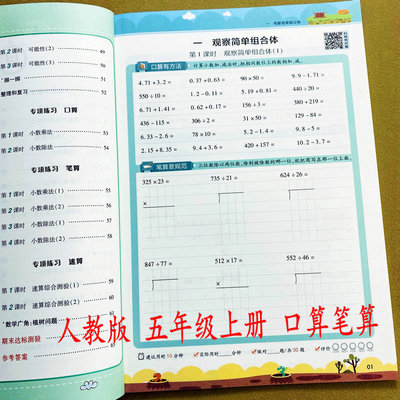 第2课时 可能性(2) 49
第3课时 可能性(3) 50
*掷一掷 51
整理和复习 52
专项练习 口算
第1课时 小数乘法 53
第2课时 小数除法 54
专项练习 笔算
第1课时 小数乘法(1) 55
第2课时 小数乘法(2) 56
第3课时 小数除法(1) 57
第4课时 小数除法(2) 58
专项练习 速算
第1课时 速算综合测验(1) 59
第2课时 速算综合测验(2) 60
*数学广角:植树问题
期末达标测验
参考答案
一 观察简单组合体
一 观察简单组合体
第1课时 观察简单组合体(1)
口算有方法 计算小数加、减法时,把相同数位上的数相加、减。
4.71+3.2= 0.37+0.63= 90×5= 9.9-1.71=
550÷10= 1.2-0.11= 5.19+0.81= 220÷20=
6.71+1.41= 0.62+0.17= 440÷20= 190×5=
436-115= 306÷2= 31×50= 9.8-5.7=
6.33-2.6= 78×10= 50-1.4= 9.8-5=
2.15+8.35= 9.4+3.6= 420+157= 10.2-3.7=
笔算要规范 三位数除以两位数,除到被除数的哪一位,就把商写在那一位上面。
325×23= 735÷21= 624÷26=
×
847÷77= 512×17= 552÷46=
×
人教版 五年级上册 口算笔算
建议用时10分钟 实际用时 分钟 做对 题/共30题 评价
01